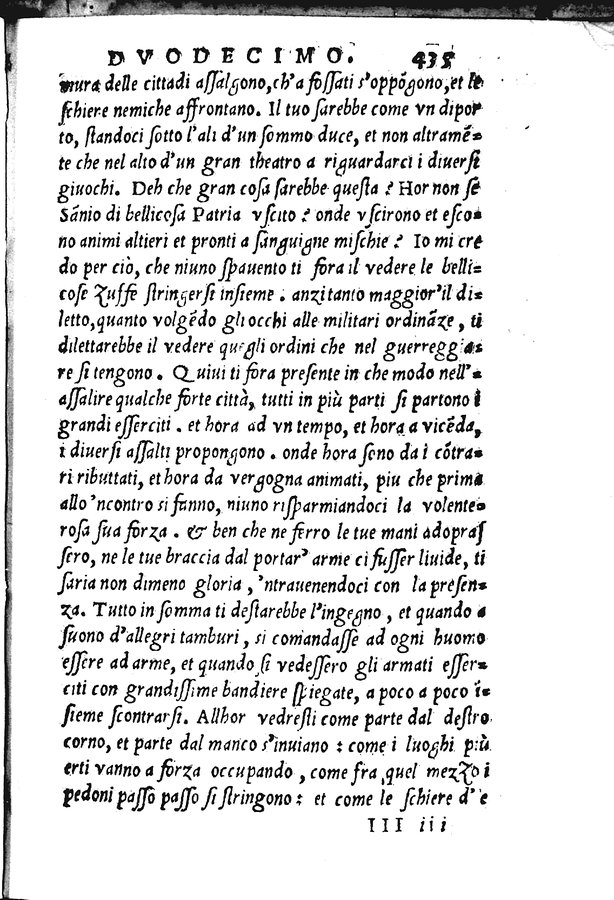 DVODECIMO. 435
mura delle cittadi aſſalgono, ch'a foſſati s'oppõgono, et le
ſchiere nemiche affrontano. Il tuo ſarebbe come vn dipor
to, ſtandoci ſotto l'ali d'un ſommo duce, et non altramẽ=
te che nel alto d'un gran theatro a riguardarci i diuerſi
giuochi. Deh che gran coſa ſarebbe queſta? Hor non ſe
Sãnio di bellicoſa Patria vſcito? onde vſcirono et eſco=
no animi altieri et pronti a ſanguigne miſchie? Io mi cre
do per ciò, che niuno ſpauento ti fora il vedere le belli=
coſe Zuffe ſtringerſi inſieme. anzi tanto maggior'il di=
letto, quanto volgẽdo gli occhi alle militari ordinãze, ti
dilettarebbe il vedere quegli ordini che nel guerreggia=
re ſi tengono. Quiui ti fora preſente in che modo nell'=
aſſalire qualche forte città, tutti in più parti ſi partono i
grandi eſſerciti. et hora ad vn tempo, et hora a vicẽda,
i diuerſi aſſalti propongono. onde hora ſeno da i cõtra=
ri ributtati, et hora da vergogna animati, piu che prima
allo 'ncontro si fanno, niuno riſparmiandoci la volente=
roſa ſua forza. & ben che ne ferro le tue mani adopraſ
ſero, ne le tue braccia dal portar' arme ci fuſſer liuide, ti
ſaria non dimeno gloria, 'ntrauenendoci con la preſen=
za. Tutto in ſomma ti deſtarebbe l'ingegno, et quando a
ſuono d'allegri tamburi, si comandaſſe ad ogni huomo
eſſere ad arme, et quando ſi vedeſſero gli armati eſſer=
citi con grandiſſime bandiere ſpiegate, a poco a poco ĩ=
ſieme ſcontrarſi. Allhor vedreſti come parte dal deſtro
corno, et parte dal manco s'inuiano: come i luoghi più
erti vanno a forza occupando, come fra quel mezzo i
pedoni paſſo paſſo ſi ſtringono: et come le ſchiere d'e
III iii